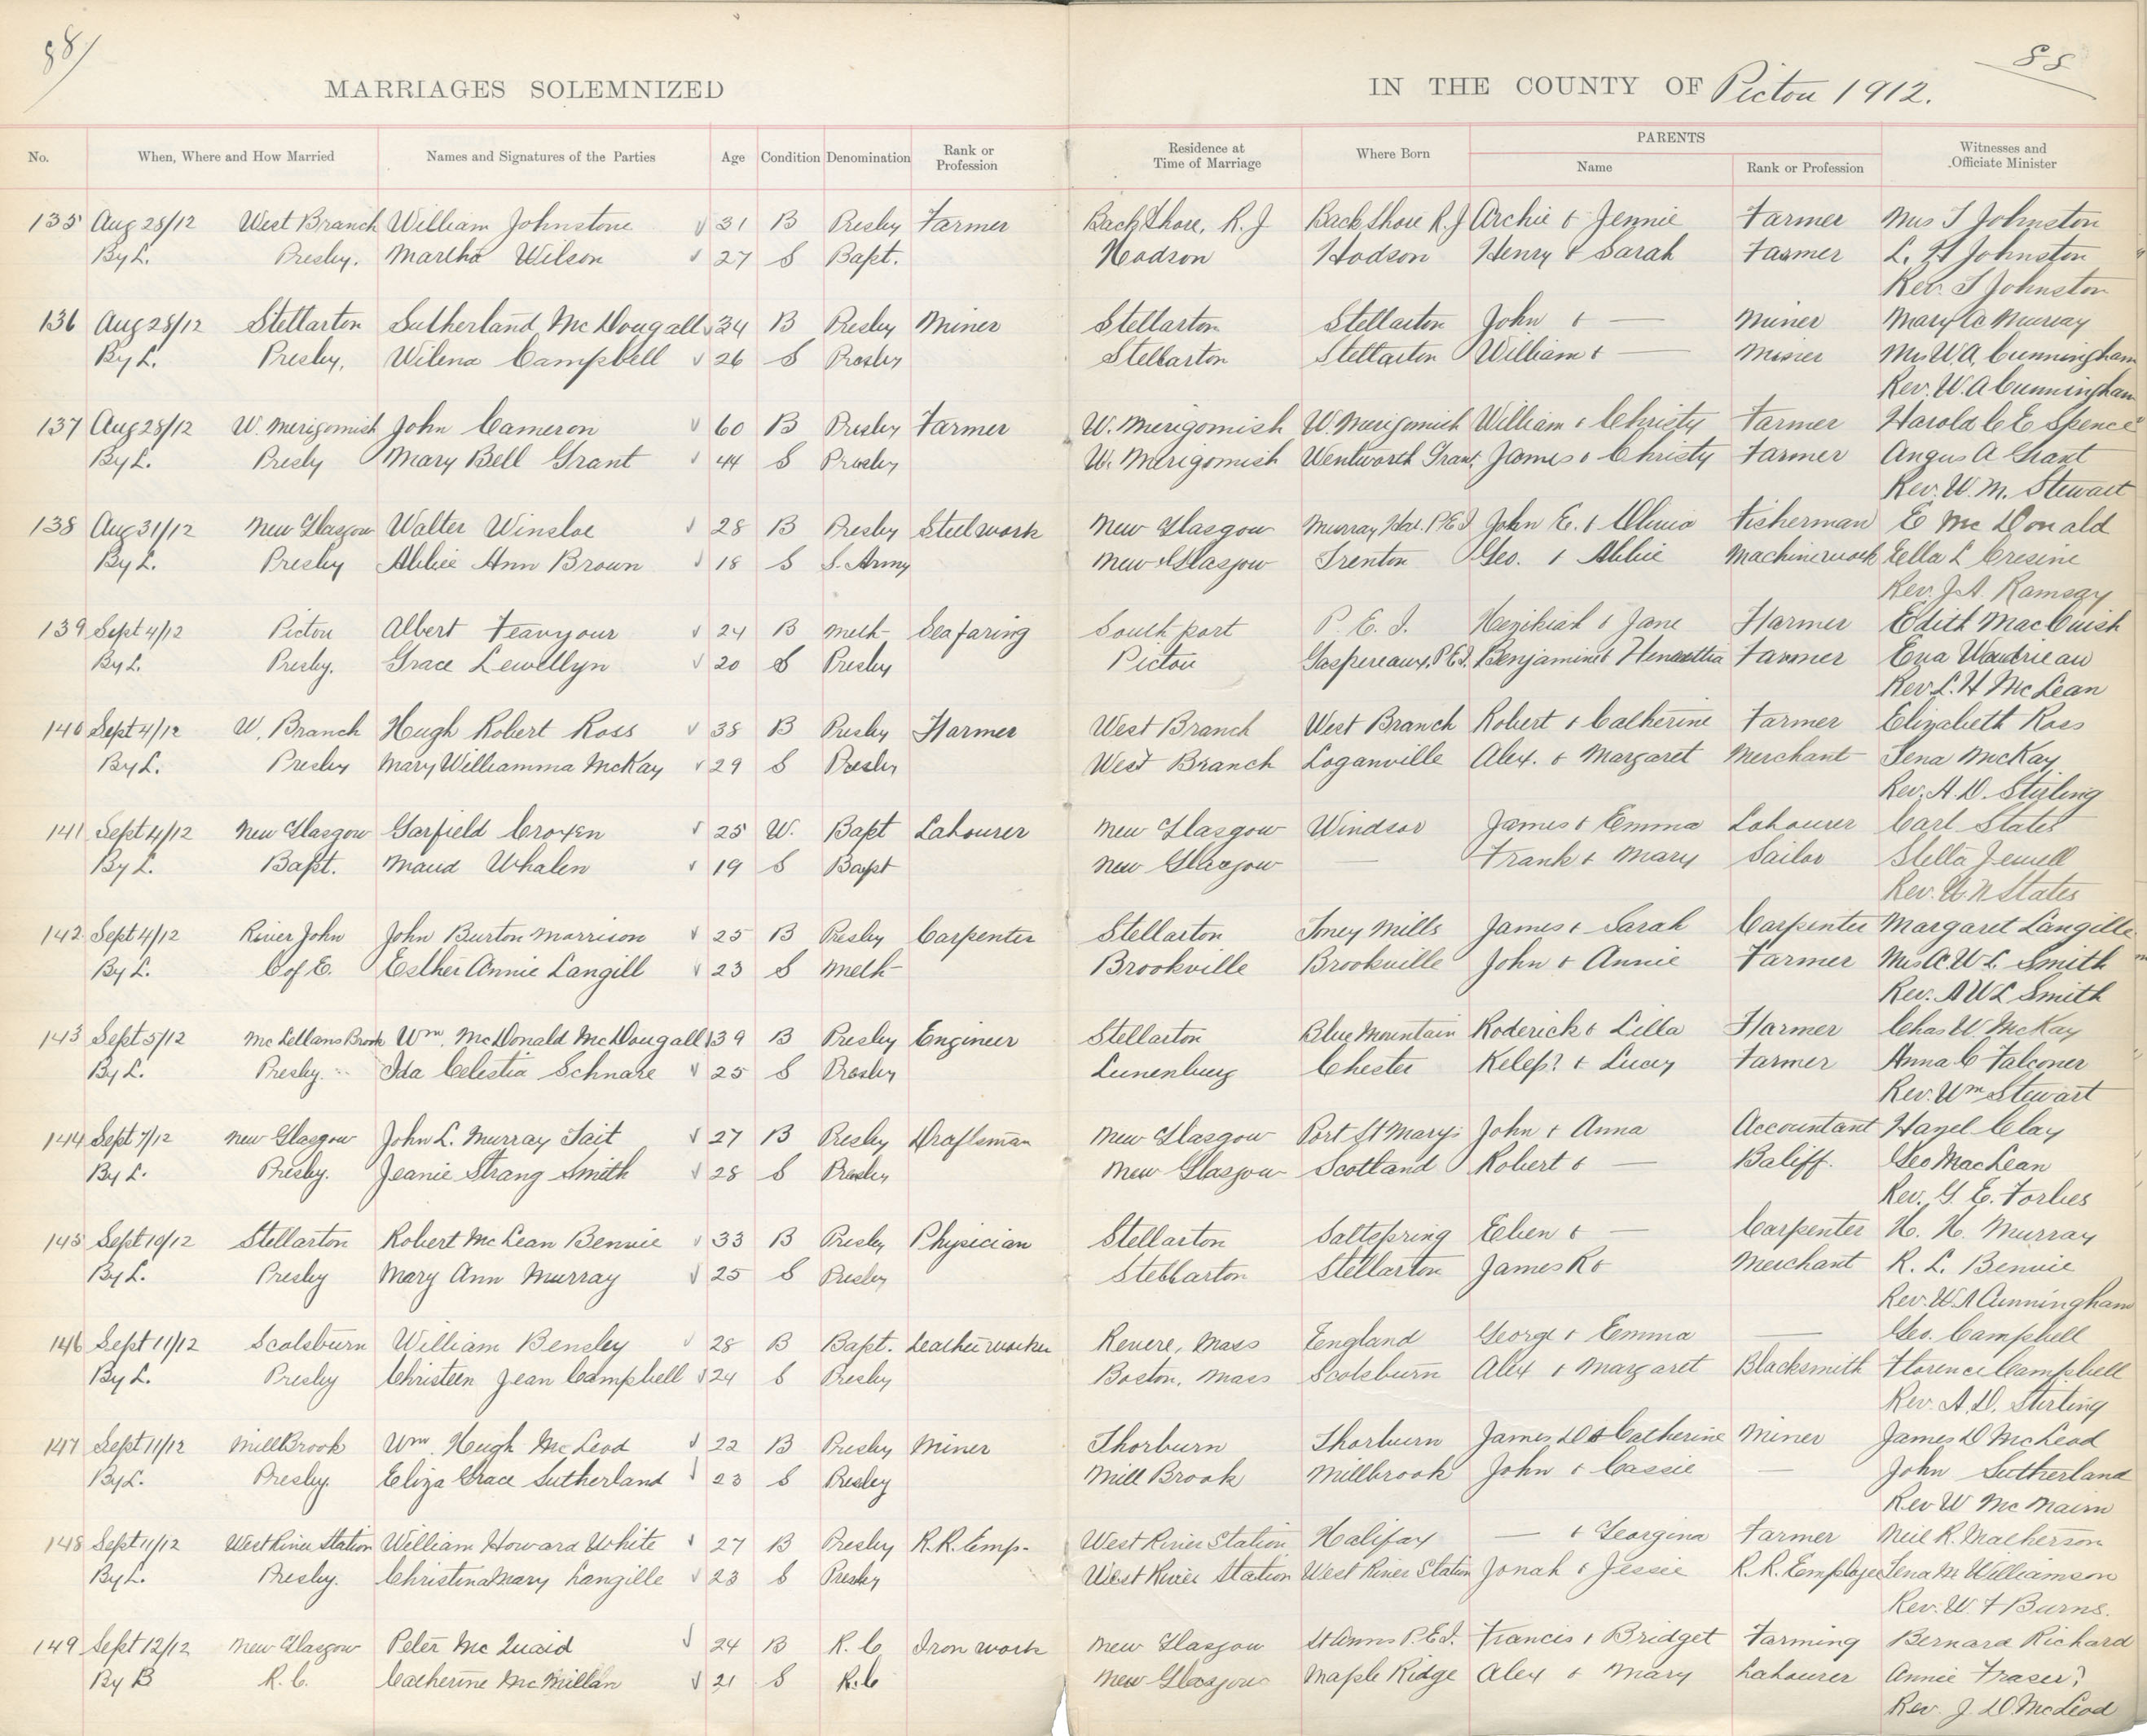 88/
88
MARRIAGES SOLEMNIZED IN THE COUNTY OF Pictou 1912.
No. When, Where and How Married Names and Signatures of the Parties Age Condition Denomination Rank or Profession Residence at Time of Marriage Where Born PARENTS Name Rank or Profession Witnesses and Officiate Minister
135 Aug 28/12 West Branch William Johnstone √ 31 B Presby Farmer Back Shore, R. J Back Shore R. J Archie & Jennie Farmer Mrs T Johnston
By L. Presby. Martha Wilson √ 27 S Bapt. Hodson Hodson Henry & Sarah Farmer L. H Johnston
Rev. T Johnston
136 Aug 28/12 Stellarton Sutherland McDougall √ 34 B Presby Miner Stellarton Stellarton John & — Miner Mary A Murray
By L. Presby, Wilena Campbell √ 26 S Presby Stellarton Stellarton William & — Miner Mrs W A, Cunningham
Rev. W. A Cunningham
137 Aug 28/12 W. Merigomish John Cameron √ 60 B Presby Farmer W. Merigomish W. Merigomish William & Christy Farmer Harold C E Spence
By L. Presby Mary Bell Grant √ 44 S Presby W. Merigomish Wentworth Grant, James & Christy Farmer Angus A Grant
Rev. W. M. Stewart
138 Aug 31/12 New Glasgow Walter Winsloe √ 28 B Presby Steelwork New Glasgow Murray Har. P E I John E. & Olivia Fisherman E McDonald
By L. Presby Abbie Ann Brown √ 18 S S. Army New Glasgow Trenton Geo. & Abbie Machinework Ella L Cresine
Rev. J. A. Ramsay
139 Sept 4/12 Pictou Albert Feavyour √ 24 B Meth- Seafaring South port P. E. I. Hezikiah & Jane Farmer Edith MacCuish
By L. Presby. Grace Lewellyn √ 20 S Presby Pictou Gaspereaux, P E I. Benjamin & Henrettia Farmer Eva
Rev. L. H McLean
140 Sept 4/12 W. Branch Hugh Robert Ross √ 38 B Presby Farmer West Branch West Branch Robert & Catherine Farmer Elizabeth Ross
By L. Presby Mary Williamma McKay √ 29 S Presby West Branch Loganville Alex. & Margaret Merchant Tena McKay
Rev. A. D. Stirling
141 Sept 4/12 New Glasgow Garfield Croxen √ 25 W. Bapt Labourer New Glasgow Windsor James & Emma Labourer Carl States
By L. Bapt. Maud Whalen √ 19 S Bapt New Glasgow — Frank & Mary Sailor Stella Jewell
Rev. W. N States
142 Sept 4/12 River John John Burton Morrison √ 25 B Presby Carpenter Stellarton Toney Mills James & Sarah Carpenter Margaret Langille
By L. C of E. Esther Annie Langill √ 23 S Meth- Brookville Brookville John & Annie Farmer Mrs A. W L. Smith
Rev. A W L Smith
143 Sept 5/12 McLellans Brook Wm. McDonald McDougall √ 39 B Presby Engineer Stellarton Blue Mountain Roderick & Lilla Farmer Chas W. McKay
By L. Presby. Ida Celestia Schnare √ 25 S Presby Lunenburg Chester Kelep? & Lucy Farmer Anna C Falconer
Rev. Wm Stewart
144 Sept 7/12 New Glasgow John L. Murray Tait √ 27 B Presby Draftsman New Glasgow Port St Marys John & Anna Accountant Hazel Clay
By L. Presby. Jeanie Strang Smith √ 28 S Presby New Glasgow Scotland Robert & — Baliff. Geo MacLean
Rev. G. E. Forbes
145 Sept 10/12 Stellarton Robert McLean Bennie √ 33 B Presby Physician Stellarton Saltspring Eben & — Carpenter H. H. Murray
By L. Presby Mary Ann Murray √ 25 S Presby Stellarton Stellarton James R & Merchant R. L. Bennie
Rev. W. A Cunningham
146 Sept 11/12 Scotsburn William Bensley √ 28 B Bapt. Leatherworker Revere, Mass England George & Emma — Geo. Campbell
By L. Presby Christeen Jean Campbell √ 24 S Presby Boston, Mass Scotsburn Alex & Margaret Blacksmith Florence Campbell
Rev. A. D. Stirling
147 Sept 11/12 MillBrook Wm. Hugh McLeod √ 22 B Presby Miner Thorburn Thorburn James D & Catherine Miner James D McLeod
By L. Presby. Eliza Grace Sutherland √ 23 S Presby Mill Brook Millbrook John & Cassie — John Sutherland
Rev W McNairn
148 Sept 11/12 West River Station William Howard White √ 27 B Presby R. R. Emp- West River Station Halifax — & Georgina Farmer Neil R. Matherson
By L. Presby. Christina Mary Langille √ 23 S Presby West River Station West River Station Jonah & Jessie R. R. Employee Tena M Williamson
Rev. W. F Burns.
149 Sept 12/12 New Glasgow Peter McQuaid √ 24 B R. C Iron work New Glasgow St Anns P. E. I. Francis & Bridget Farming Bernard Richard
By B R. C. Catherine McMillan √ 21 S R. C New Glasgow Maple Ridge Alex & Mary Labourer Annie Fraser?
Rev. J. D. McLeod